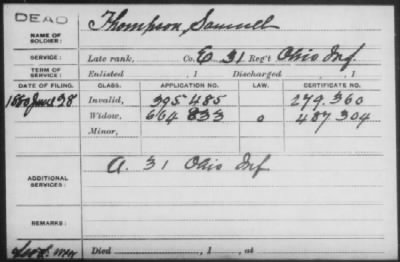 DEAD
NAME OF SOLDIER: Thompson, Samuel
SERVICE: Late rank, Co. E 31 Reg't Ohio Inf.
TERM OF SERVICE: Enlisted , 1 Discharged , 1
DATE OF FILING. CLASS. APPLICATION NO. LAW. CERTIFICATE NO.
1880 June 28 Invalid, 395.485 279.360
Widow, 664 833 0 487 304
Minor,
ADDITIONAL SERVICES: A. 31 Ohio Inf
REMARKS:
Died , 1 , at